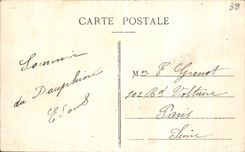 CARTE POSTALE
38
Souvenir
du Dauphiné
Mr E Grenot
202 Bd Voltaire
Paris
Seine